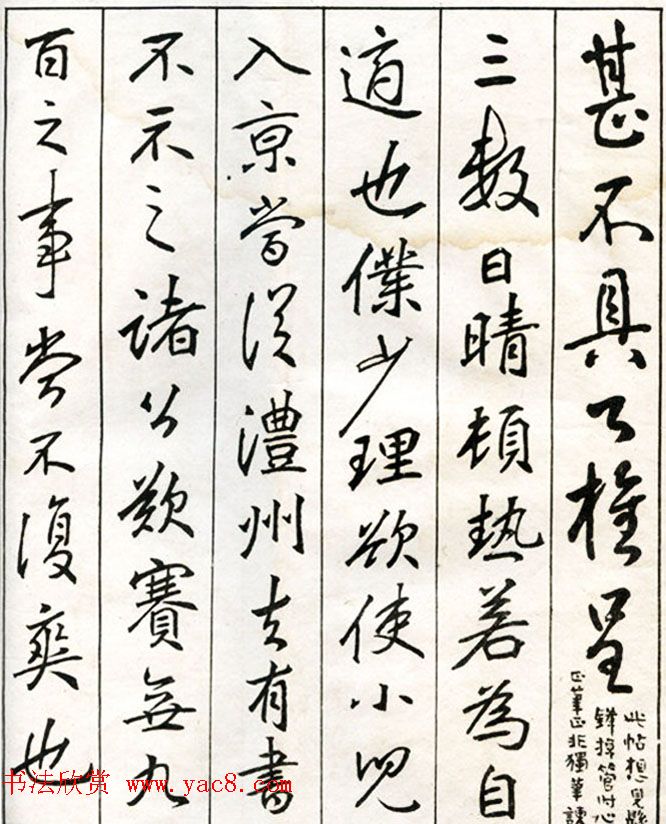 甚不具公權呈
此帖想見懸
鋒操管時心
正筆正非獨筆諫
三數日晴頓熱若為自
適也僕少理欲使小兒
入京當從澧州去有書
不示之諸公歎賽無九
百之事當不復爽也
书法欣赏 www.yac8.com